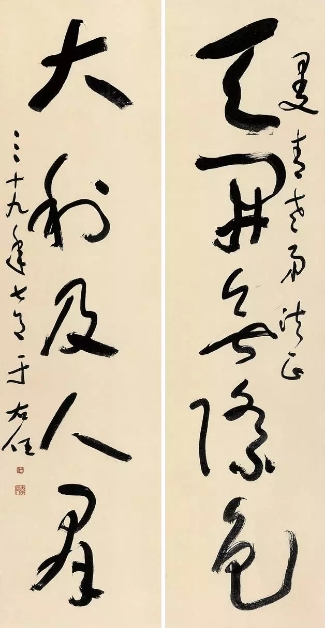 曼青老弟 法正
天開無際色
大利及人羣
三十九年七月 于右任